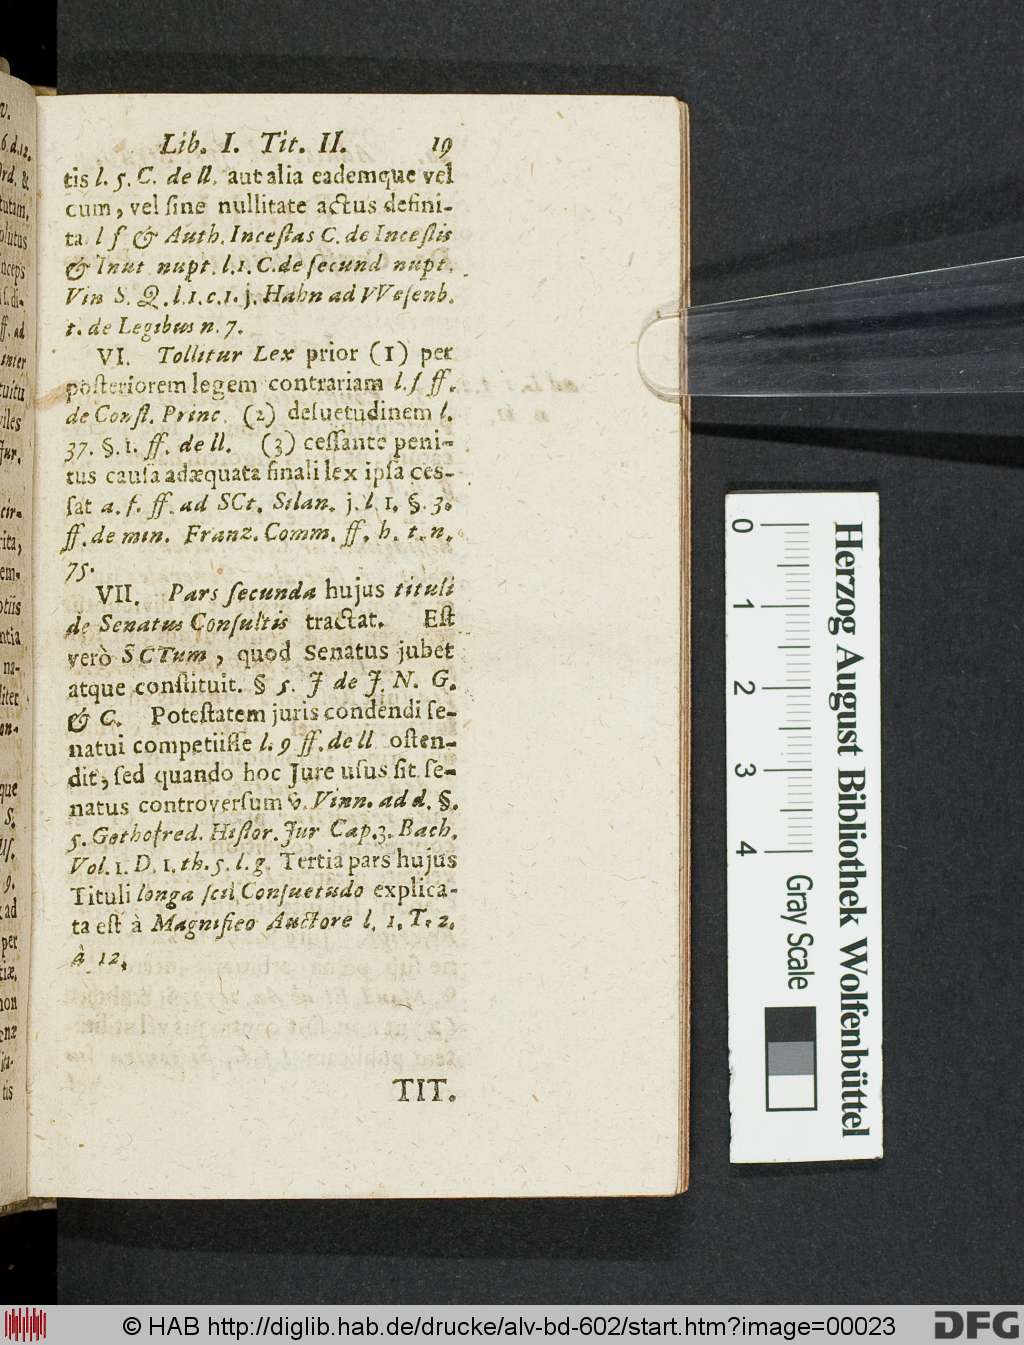 Lib. I. Tit. II. 19
tis l. 5. C. de ll. aut alia eademque vel
cum, vel sine nullitate actus defini-
ta l f & Auth. Incestas C. de Incestis
& Inut nupt. l. 1. C. de secund nupt.
Vin S. Q. l. 1. c. 1. j. Hahn ad VVesenb.
t. de Legibus n. 7.
VI. Tollitur Lex prior (1) per
posteriorem legem contrariam l. f ff.
de Const. Princ. (2) desuetudinem l.
37. §. 1. ff. de ll. (3) cessante peni-
tus causa adæquata finali lex ipsa ces-
sat a. f. ff. ad SCt. Silan. j. l. 1. §. 3.
ff. de min. Franz. Comm. ff. h. t. n.
75.
VII. Pars secunda hujus tituli
de Senatus Consultis tractat. Est
verò SCTum, quod Senatus jubet
atque constituit. § 5. J de J. N. G.
& C. Potestatem juris condendi se-
natui competiisse l. 9 ff. de ll osten-
dit, sed quando hoc Jure usus sit se-
natus controversum v. Vinn. ad d. §.
5. Gothofred. Histor. Jur Cap. 3. Bach.
Vol. 1. D. 1. th. 5. l. g. Tertia pars hujus
Tituli longa scil Consuetudo explica-
ta est à Magnifico Auctore l. 1. T. 2.
à 12.
TIT.
0 1 2 3 4
Gray Scale
Herzog August Bibliothek Wolfenbüttel
© HAB http://diglib.hab.de/drucke/alv-bd-602/start.htm?image=00023
DFG